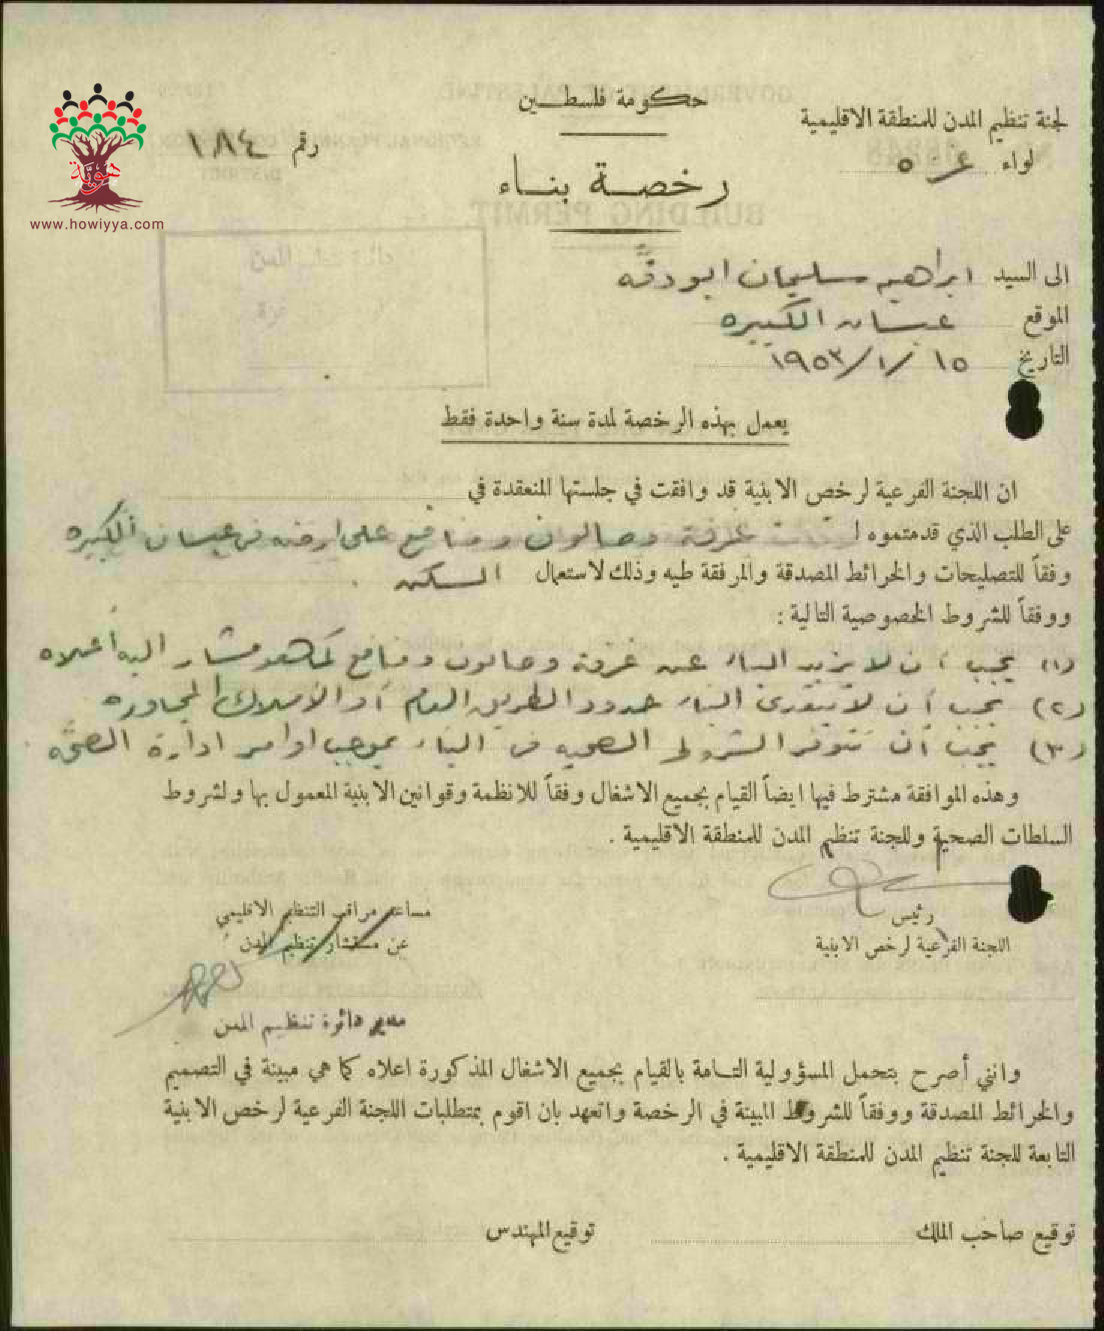 حكومة فلسطين
لجنة تنظيم المدن للمنطقة الاقليمية
لواء غزة
رقم ١٨٤
هوية
www.howiyya.com
رخصة بناء
الى السيد ابراهيم سليمان ابودقه
الموقع عبسان الكبيره
التاريخ ١٥/١/١٩٥٣
يعمل بهذه الرخصة لمدة سنة واحدة فقط
ان اللجنة الفرعية لرخص الابنية قد وافقت في جلستها المنعقدة في
على الطلب الذي قدمتموه ل غرفة وصالون ومنافع على ارضه في عبسان الكبيره
وفقاً للتصليحات والخرائط المصدقة والمرفقة طيه وذلك لاستعمال السكن
ووفقاً للشروط الخصوصية التالية :
(١) يجب أن لا يزيد البناء عن غرفة وصالون ومنافع كما هو مشار اليه أعلاه
(٢) يجب أن لا يتعدى البناء حدود الطريق العام أو الأملاك المجاوره
(٣) يجب أن تتوفر الشروط الصحيه في البناء بموجب اوامر ادارة الصحه
وهذه الموافقة مشترط فيها ايضاً القيام بجميع الاشغال وفقاً للانظمة وقوانين الابنية المعمول بها ولشروط
السلطات الصحية وللجنة تنظيم المدن للمنطقة الاقليمية .
رئيس
اللجنة الفرعية لرخص الابنية
مساعد مراقب التنظيم الاقليمي
عن مستشار تنظيم المدن
مدير دائرة تنظيم المدن
وانني أصرح بتحمل المسؤولية التامة بالقيام بجميع الاشغال المذكورة اعلاه كما هي مبينة في التصميم
والخرائط المصدقة ووفقاً للشروط المبينة في الرخصة واتعهد بان اقوم بمتطلبات اللجنة الفرعية لرخص الابنية
التابعة للجنة تنظيم المدن للمنطقة الاقليمية .
توقيع صاحب الملك
توقيع المهندس